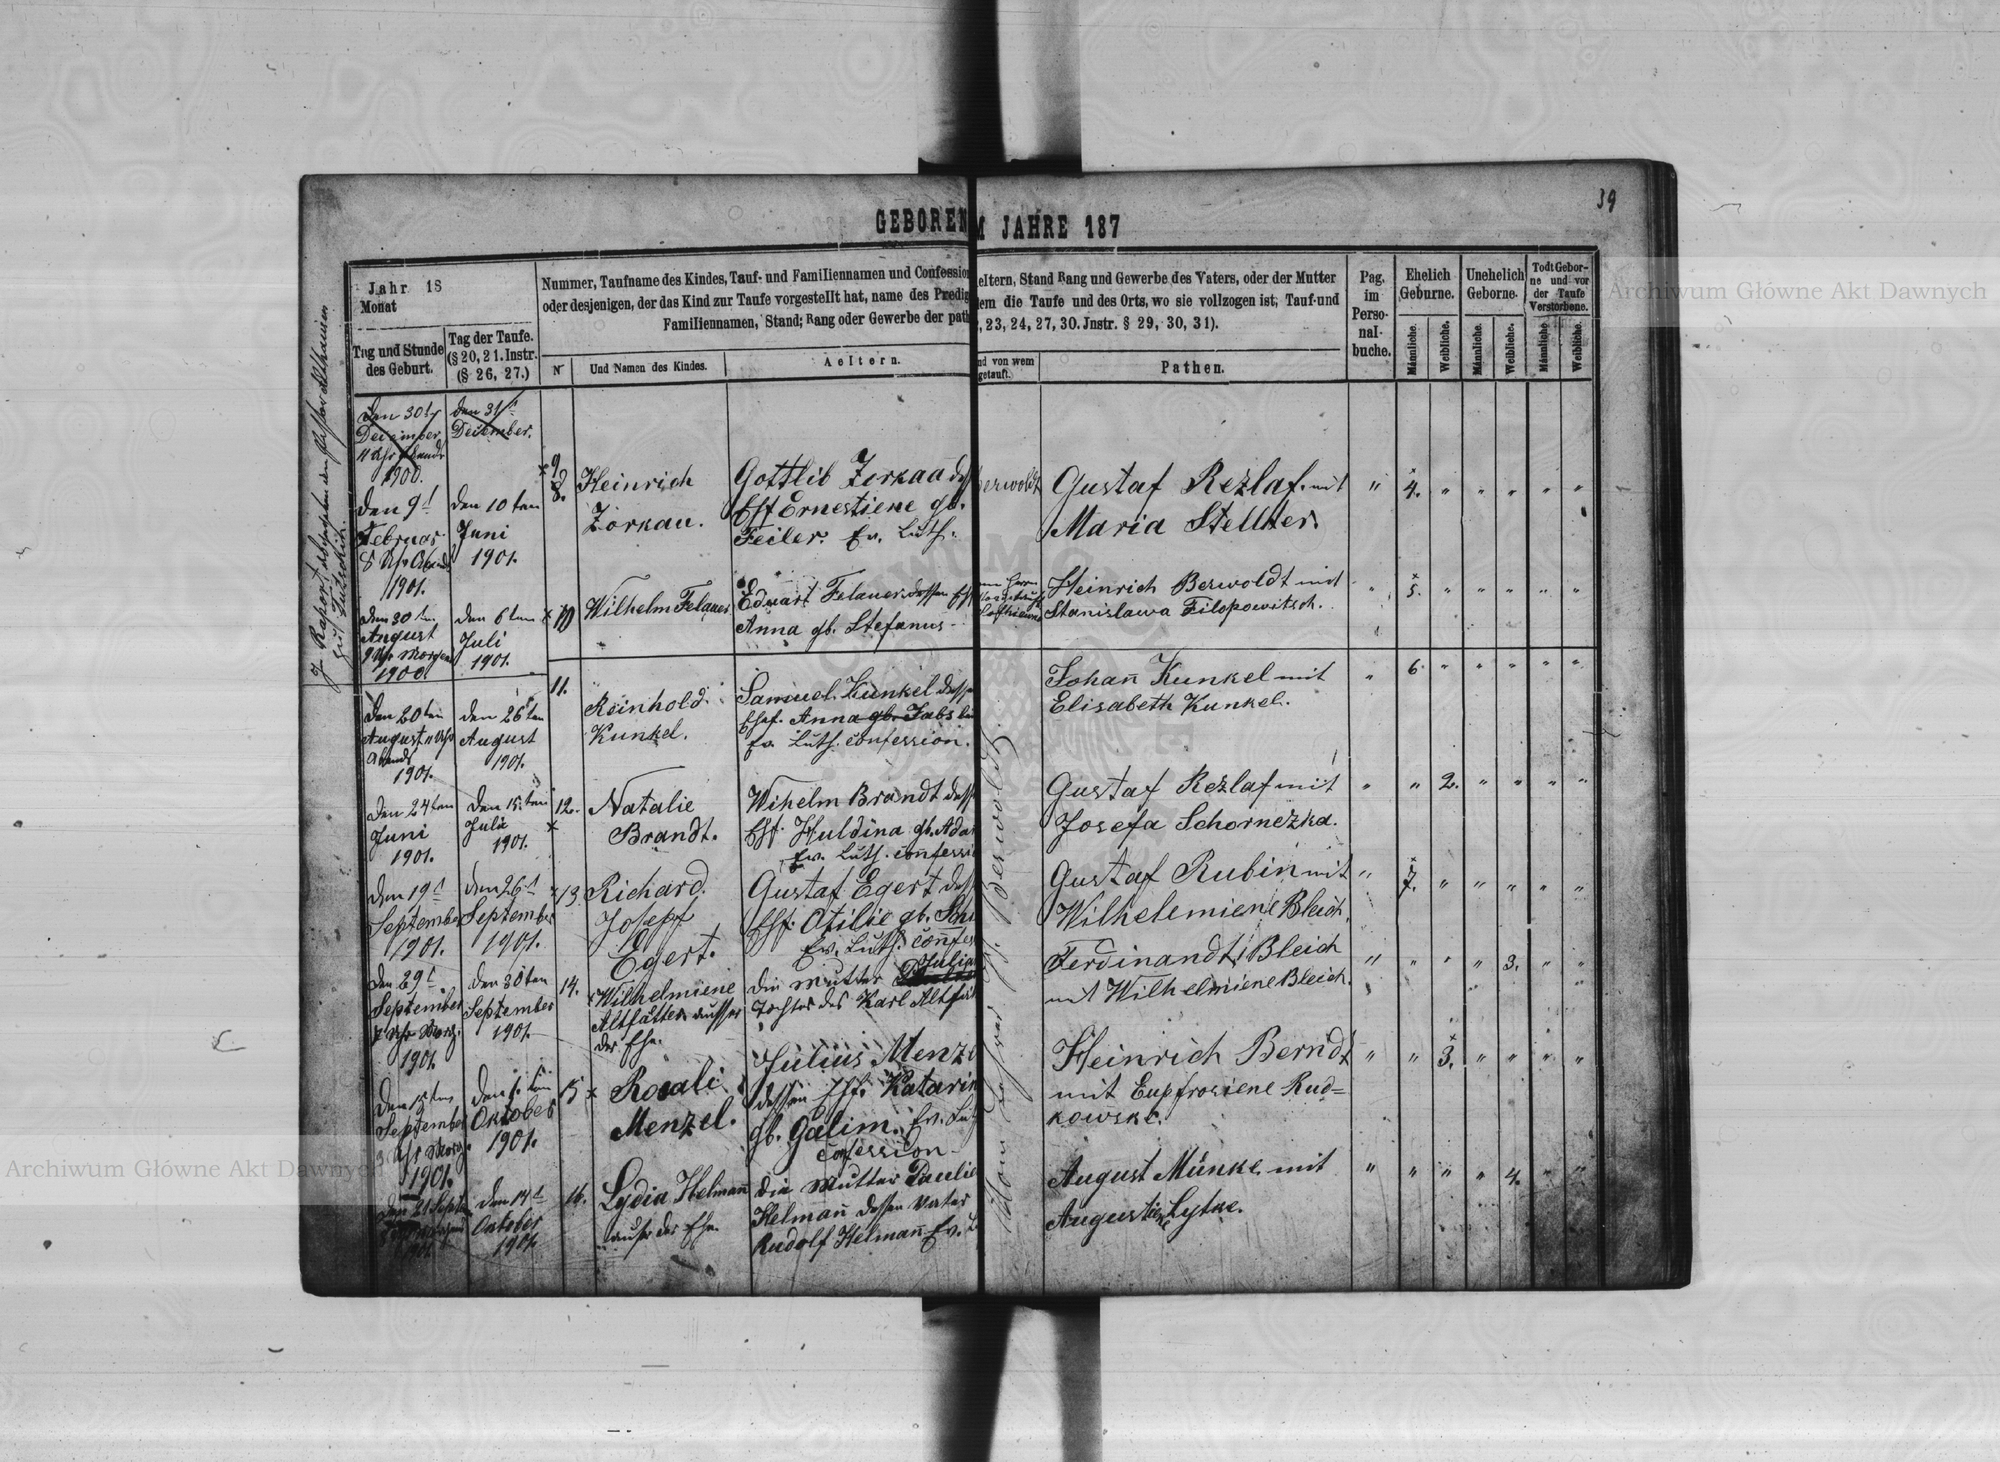 39
GEBOREN M JAHRE 187
Jahr 18
Monat
Tag und Stunde
des Geburt.
Tag der Taufe.
(§ 20, 21. Instr.
(§ 26, 27.)
Nummer, Taufname des Kindes, Tauf- und Familiennamen und Confession
oder desjenigen, der das Kind zur Taufe vorgestellt hat, name des Predig
Familiennamen, Stand; Rang oder Gewerbe der path
Nr
Und Namen des Kindes.
Aeltern.
eltern, Stand Rang und Gewerbe des Vaters, oder der Mutter
dem die Taufe und des Orts, wo sie vollzogen ist; Tauf-und
, 23, 24, 27, 30. Jnstr. § 29, 30, 31).
nd von wem
getauft.
Pathen.
Pag.
im
Perso-
nal-
buche.
Ehelich
Geburne.
Unehelich
Geborne.
Todt Gebor-
ne und vor
der Taufe
Verstorbene.
Männliche.
Weibliche.
Männliche.
Weibliche.
Männliche.
Weibliche.
den 30t
December
11 Uhr Abends
1900.
den 31t
December.
den 9t
Februar
8 Uhr Abends
1901.
den 10ten
Juni
1901.
9
8.
Heinrich
Zorkau.
Gottlib Zorkaū des
Ehf Ernestiene gb.
Feiler. Ev. Luth.
Berwoldt
Gustaf Rezlaf mit
Maria Stellter.
" 4. " " " " "
den 30ten
August
9 Uhr Morgens
1900
den 6ten
Juli
1901.
10
Wilhelm Felauer
Eduart Felauer dessen Ehf
Anna gb. Stefanus
Heinrich Berwoldt mit
Stanislawa Filopowitsch.
" 5. " " " " "
den 20ten
August 11 Uhr
Abends
1901.
den 26ten
August
1901.
11.
Reinhold
Kunkel.
Samuel Kunkel dess
Ehef. Anna gb. Jabs
Ev. Luth. confession.
Johañ Kunkel mit
Elisabeth Kunkel.
" 6. " " " " "
den 24ten
Juni
1901.
den 15ten
Juli
1901.
12.
Natalie
Brandt.
Wihelm Brandt dess
Ehf. Huldina gb. Ada
Ev. Luth. confessi
Gustaf Rezlaf mit
Josefa Schornezka.
" " 2. " " " "
den 19t
September
1901.
den 26t
September
1901.
13
Richard
Josepf
Egert.
Gustaf Egert des
Ehf. Otilie gb. Sch
Ev. Luth. confes
Gustaf Rubin mit
Wilhelemiene Bleich.
" 7. " " " " "
den 29t
September
7 Uhr Morg.
1901.
den 30ten
September
1901.
14.
Wilhelmiene
Altfätter ausser
der Ehe.
Julia
die Mutter
Tochter des Karl Altfät
Ferdinandt Bleich
mit Wilhelmiene Bleich.
" " " " 3. " "
den 15ten
September
3 Uhr Morg.
1901.
Oktober
1901.
15
Rosali
Menzel.
Julius Menze
dessen Ehf. Katarin
gb. Galim. Ev. Lu
confession
Heinrich Berndt
mit Eupfrosiene Rud=
kowske.
" " 3. " " " "
den 21 Septem
1901
den 14t
Oktober
1901.
16.
Lydia Helmañ
auser der Ehe
die Mutter Paulie
Helmañ dessen Vater
Rudolf Helmañ Ev. L
August Münke mit
Augustiene Lytke.
" " " " 4. " "
Berwoldt
Archiwum Główne Akt Dawnych
Archiwum Główne Akt Dawnych